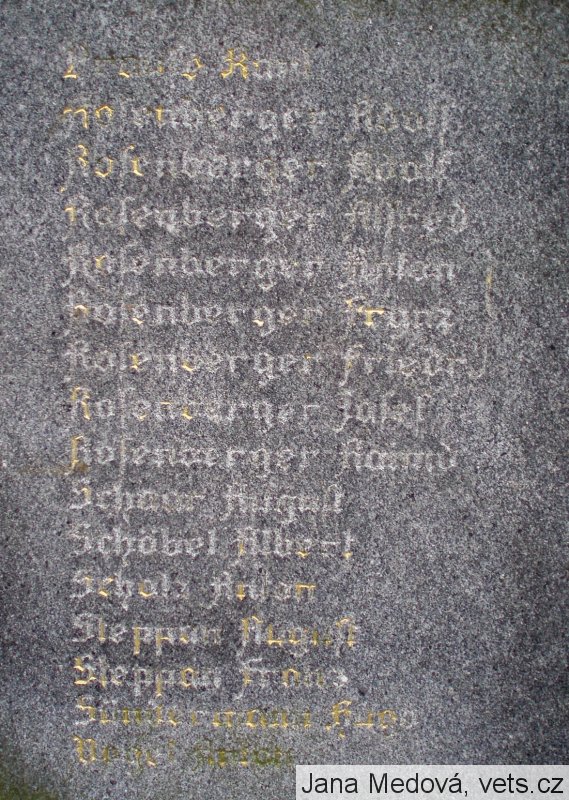 Rosenberger Adolf
Rosenberger Adolf
Rosenberger Alfred
Rosenberger Anton
Rosenberger Franz
Rosenberger Friedr
Rosenberger Josef
Rosenberger Raimd
Schaur August
Schöbel Albert
Scholz Anton
Steppan August
Steppan Franz
Sündermann Hugo
Vogel Anton
Jana Medová, vets.cz